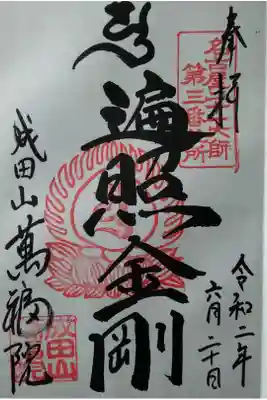 奉拝
名古屋二十一大師
第三番札所
遍照金剛
令和二年
六月二十日
成田山萬福院
成田山